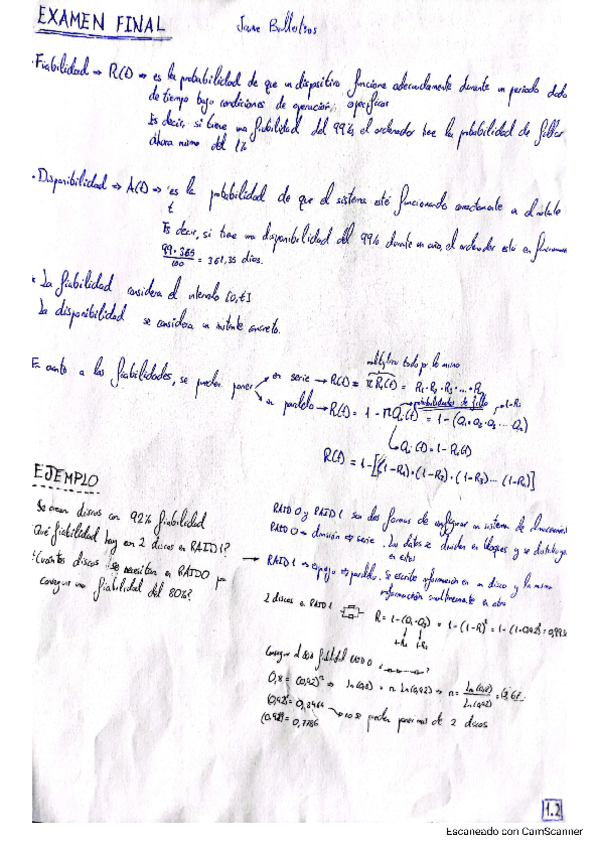 EXAMEN FINAL
· Fiabilidad → R(t) → es la probabilidad de que un dispositivo funcione adecuadamente durante un periodo dado
de tiempo bajo condiciones de operación específicas
Es decir, si tiene una fiabilidad del 99%, el ordenador tiene la probabilidad de fallar
ahora mismo del 1%
· Disponibilidad → A(t) → es la probabilidad de que el sistema esté funcionando correctamente en el instante
t
Es decir, si tiene una disponibilidad del 99% durante un año, el ordenador está en funcionamiento
99·365/100 = 361,35 días.
La fiabilidad considera el intervalo [0,t]
La disponibilidad se considera un instante concreto.
En cuanto a las fiabilidades, se pueden poner
multiplica todo por lo mismo
en serie → R(t) = π Ri(t) = R1·R2·R3·...·Rn
probabilidades de fallo 1-Ri
en paralelo → R(t) = 1 - πQi(t) = 1-(Q1·Q2·Q3...Qn)
Qi(t) = 1-Ri(t)
R(t) = 1-[(1-R1)·(1-R2)·(1-R3)...(1-Rn)]
EJEMPLO
Se crean discos con 92% fiabilidad
¿Qué fiabilidad hay en 2 discos en RAID1?
¿Cuántos discos se necesitan en RAID0 para
conseguir una fiabilidad del 80%?
RAID 0 y RAID 1 son dos formas de configurar un sistema de almacenamiento
RAID 0 → división → serie. Los datos se dividen en bloques y se distribuyen
en estos
→ RAID 1 → espejo → paralelo. Se escribe información en un disco y la misma
información simultáneamente en otro
2 discos en RAID1 R = 1-(Q1·Q2) = 1-(1-R)² = 1-(1-0,92)² = 0,9936
1-R1 1-R2
0,8 = (0,92)ⁿ → ln(0,8) = n ln(0,92) → n = ln(0,8)/ln(0,92) = 2,67
(0,92)² = 0,8464
(0,92)³ = 0,7786 → no se pueden poner mas de 2 discos
1.2
Escaneado con CamScanner